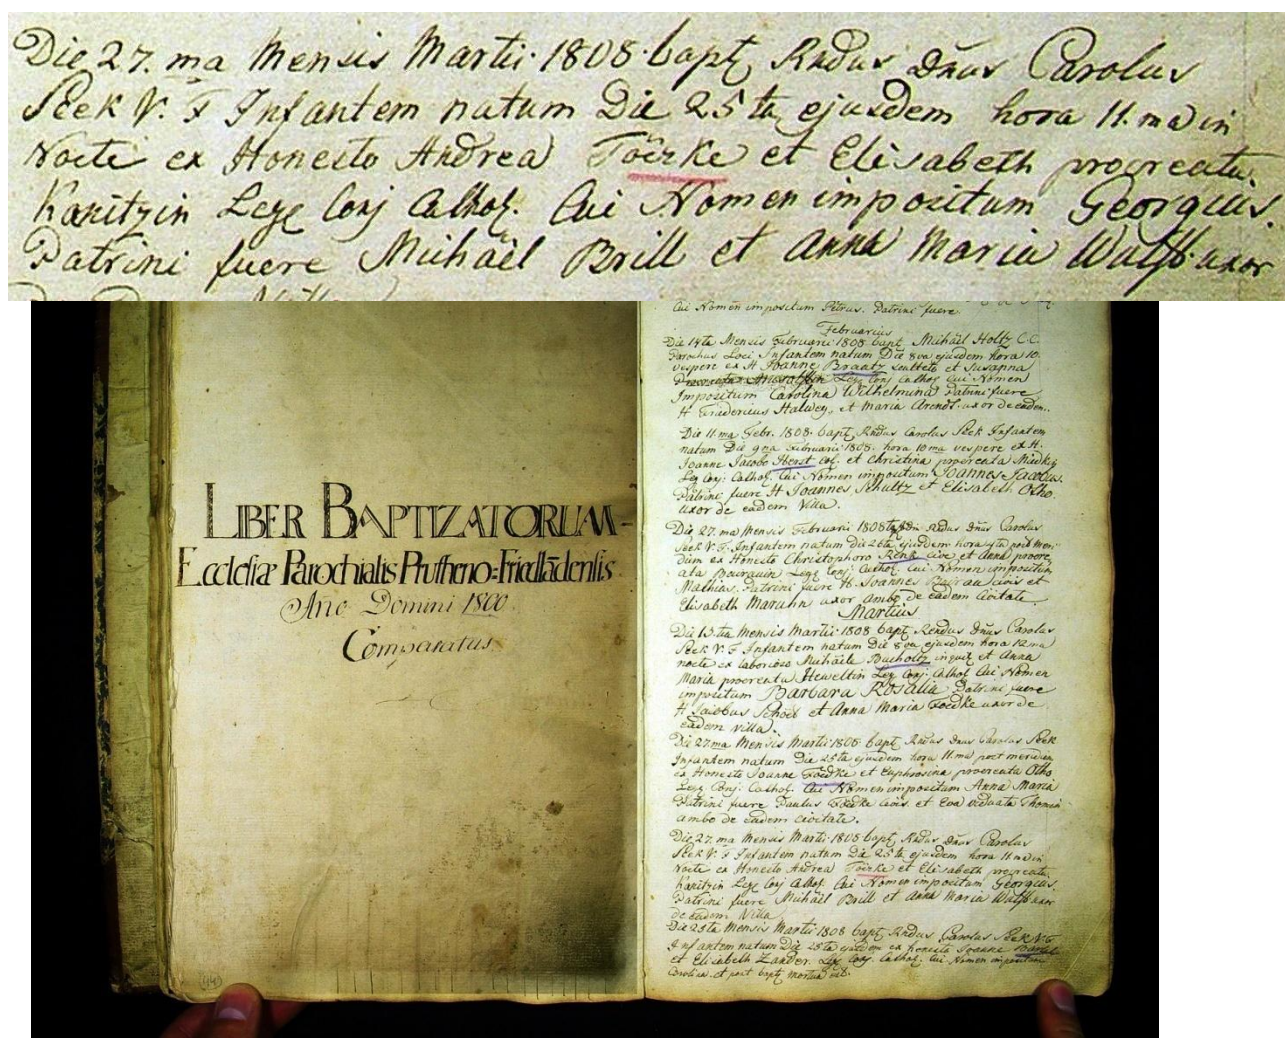 Die 27. ma Mensis Martii 1808 bapt Rndus Dnus Carolus
Seek V. F Infantem natum Die 25 ta ejusdem hora 11. ma in
Nocte ex Honesto Andrea et Elisabeth procreata
Kanitzin Lege Conj Cathol. Cui Nomen impositum Georgius.
Patrini fuere Michäel Brill et Anna Maria Wulff uxor
LIBER BAPTIZATORUM
Ecclesiæ Parochialis Prutheno=Friedlãdensis
Ano Domini 1800
Comparatus
94
Cui Nomen impositum Petrus. Patrini fuere
Februarius
Die 14ta Mensis Februarii 1808 bapt. Michäel Holtz C.C.
Parochus Loci Infantem natum Die 8va ejusdem hora 10.
vespere ex H Joanne Braatz sculteto et Susanna
Lege Conj Cathol Cui Nomen
Impositum Carolina Wilhelmina Patrini fuere
H Fridericus Halweg, et Maria Arendt uxor de eadem.
Die 11. ma Febr. 1808. bapt Rndus Carolus Seek Infantem
natum Die 9na Februarii 1808. hora 10ma vespere ex H.
Joanne Jacobo Herst et Christina procreata
Leg Conj: Cathol. Cui Nomen impositum Joannes Jacobus.
Patrini fuere H Joannes Schultz et Elisabeth Otho
uxor de eadem Villa.
Die 27. ma Mensis Februarii 1808 Rndus Dnus Carolus
Seek V. F. Infantem natum Die 26ta ejusdem hora 4ta post meri-
diem ex Honesto Christophoro Renk cive et Anna procre
ata Lege Conj: Cathol. Cui Nomen impositum
Mathias. Patrini fuere H. Joannes civis et
Elisabeth Maruhn uxor ambo de eadem Civitate.
Martius
Die 13. tia Mensis Martii 1808 bapt Rendus Dnus Carolus
Seek V. F Infantem natum Die 8va ejusdem hora 12 ma
nocte ex laborioso Michäele Bucholtz inquil et Anna
Maria procreata Heweltin Leg Conj: Cathol Cui Nomen
impositum Barbara Rosalia Patrini fuere
H Jacobus et Anna Maria Goedke uxor de
eadem villa.
Die 27. ma Mensis Martii 1808 bapt Rndus Dnus Carolus Seek
Infantem natum Die 25ta ejusdem hora 11. ma post meridiem
ex Honesto Joanne Goedke et Euphrosina procreata Otho
Lege Conj: Cathol. Cui Nomen impositum Anna Maria
Patrini fuere Paulus Goedke civis et Eva viduata Thomas
ambo de eadem civitate.
Die 27. ma Mensis Martii 1808 bapt Rndus Dnus Carolus
Seek V. F Infantem natum Die 25 ta ejusdem hora 11 ma in
Nocte ex Honesto Andrea et Elisabeth procreata
Kanitzin Lege Conj Cathol. Cui Nomen impositum Georgius.
Patrini fuere Michäel Brill et Anna Maria Wulff uxor
de eadem Villa
Die 25ta Mensis Martii 1808 bapt Rndus Carolus Seek V. F
Infantem natum Die 25ta ejusdem ex honesto Joanne
et Elisabeth Zander. Leg Conj. Cathol. Cui Nomen impositum
Carolina. et post bapt mortua est.